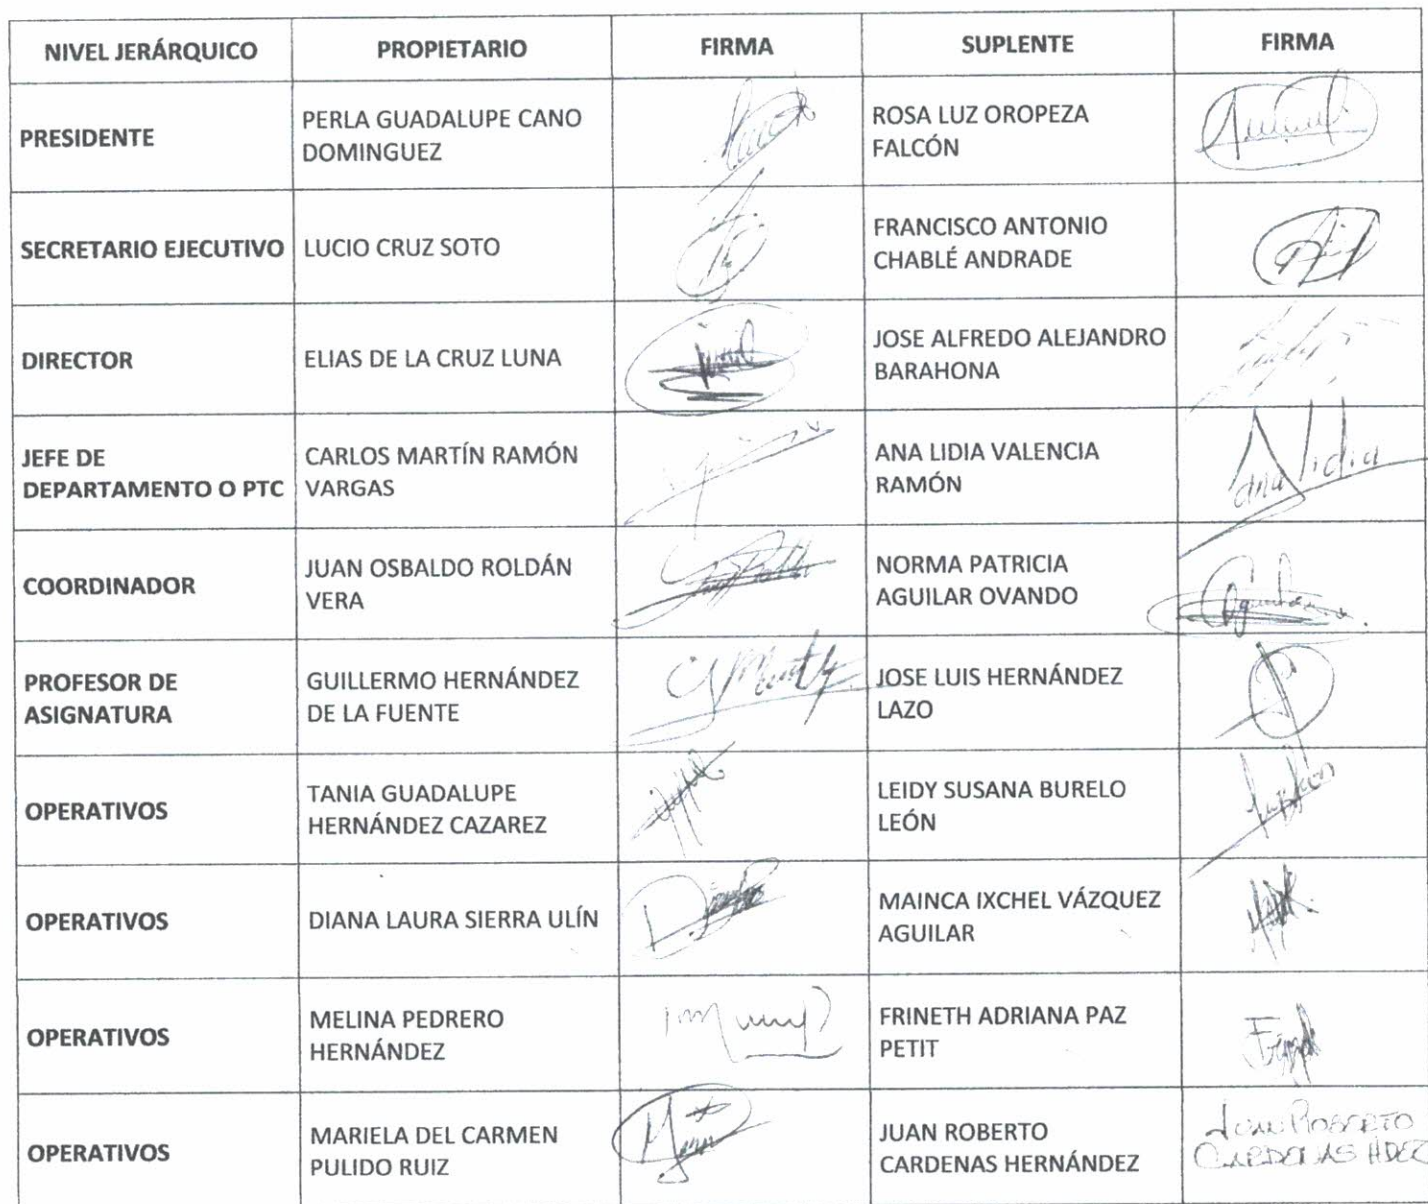 NIVEL JERÁRQUICO PROPIETARIO FIRMA SUPLENTE FIRMA
PRESIDENTE
PERLA GUADALUPE CANO
DOMINGUEZ
ROSA LUZ OROPEZA
FALCÓN
SECRETARIO EJECUTIVO
LUCIO CRUZ SOTO
FRANCISCO ANTONIO
CHABLÉ ANDRADE
DIRECTOR
ELIAS DE LA CRUZ LUNA
JOSE ALFREDO ALEJANDRO
BARAHONA
JEFE DE
DEPARTAMENTO O PTC
CARLOS MARTÍN RAMÓN
VARGAS
ANA LIDIA VALENCIA
RAMÓN
Ana Lidia
COORDINADOR
JUAN OSBALDO ROLDÁN
VERA
NORMA PATRICIA
AGUILAR OVANDO
PROFESOR DE
ASIGNATURA
GUILLERMO HERNÁNDEZ
DE LA FUENTE
JOSE LUIS HERNÁNDEZ
LAZO
OPERATIVOS
TANIA GUADALUPE
HERNÁNDEZ CAZAREZ
LEIDY SUSANA BURELO
LEÓN
OPERATIVOS
DIANA LAURA SIERRA ULÍN
MAINCA IXCHEL VÁZQUEZ
AGUILAR
OPERATIVOS
MELINA PEDRERO
HERNÁNDEZ
FRINETH ADRIANA PAZ
PETIT
OPERATIVOS
MARIELA DEL CARMEN
PULIDO RUIZ
JUAN ROBERTO
CARDENAS HERNÁNDEZ
JUAN ROBERTO
CARDENAS HDEZ